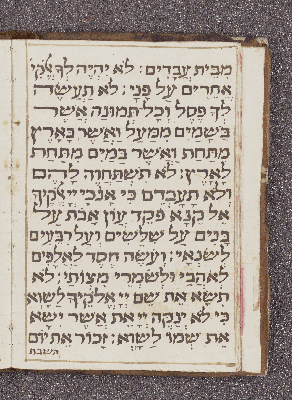 מבית עבדים: לא יהיה לך אלקי
אחרים על פני: לא תעשה
לך פסל וכל תמונה אשר
בשמים ממעל ואשר בארץ
מתחת ואשר במים מתחת
לארץ: לא תשתחוה להם
ולא תעבדם כי אנכי ייאלקיך
אל קנא פקד עון אבת על
בנים על שלשים ועל רבעים
לשנאי: ועשה חסד לאלפים
לאהבי ולשמרי מצותי: לא
תשא את שם יי אלקיך לשוא
כי לא ינקה יי את אשר ישא
את שמו לשוא: זכור את יום
השבת